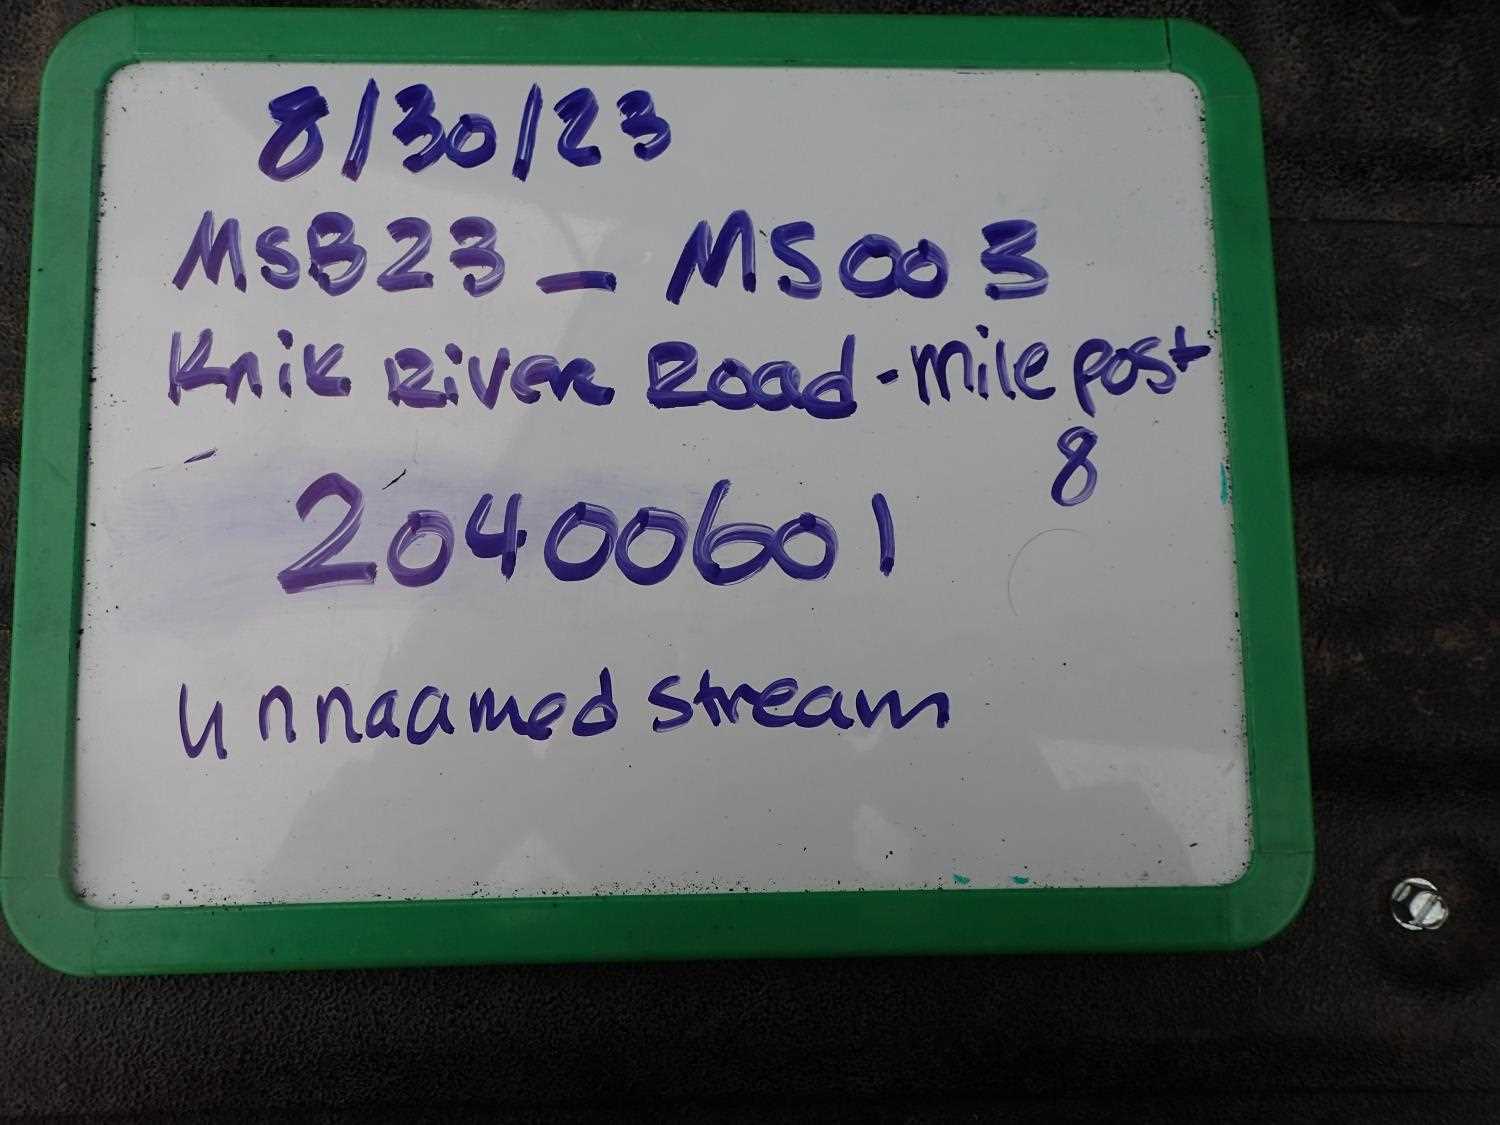 8/30/23
MSB23_MS003
Knik River Road - milepost
8
20400601
unnaamed stream